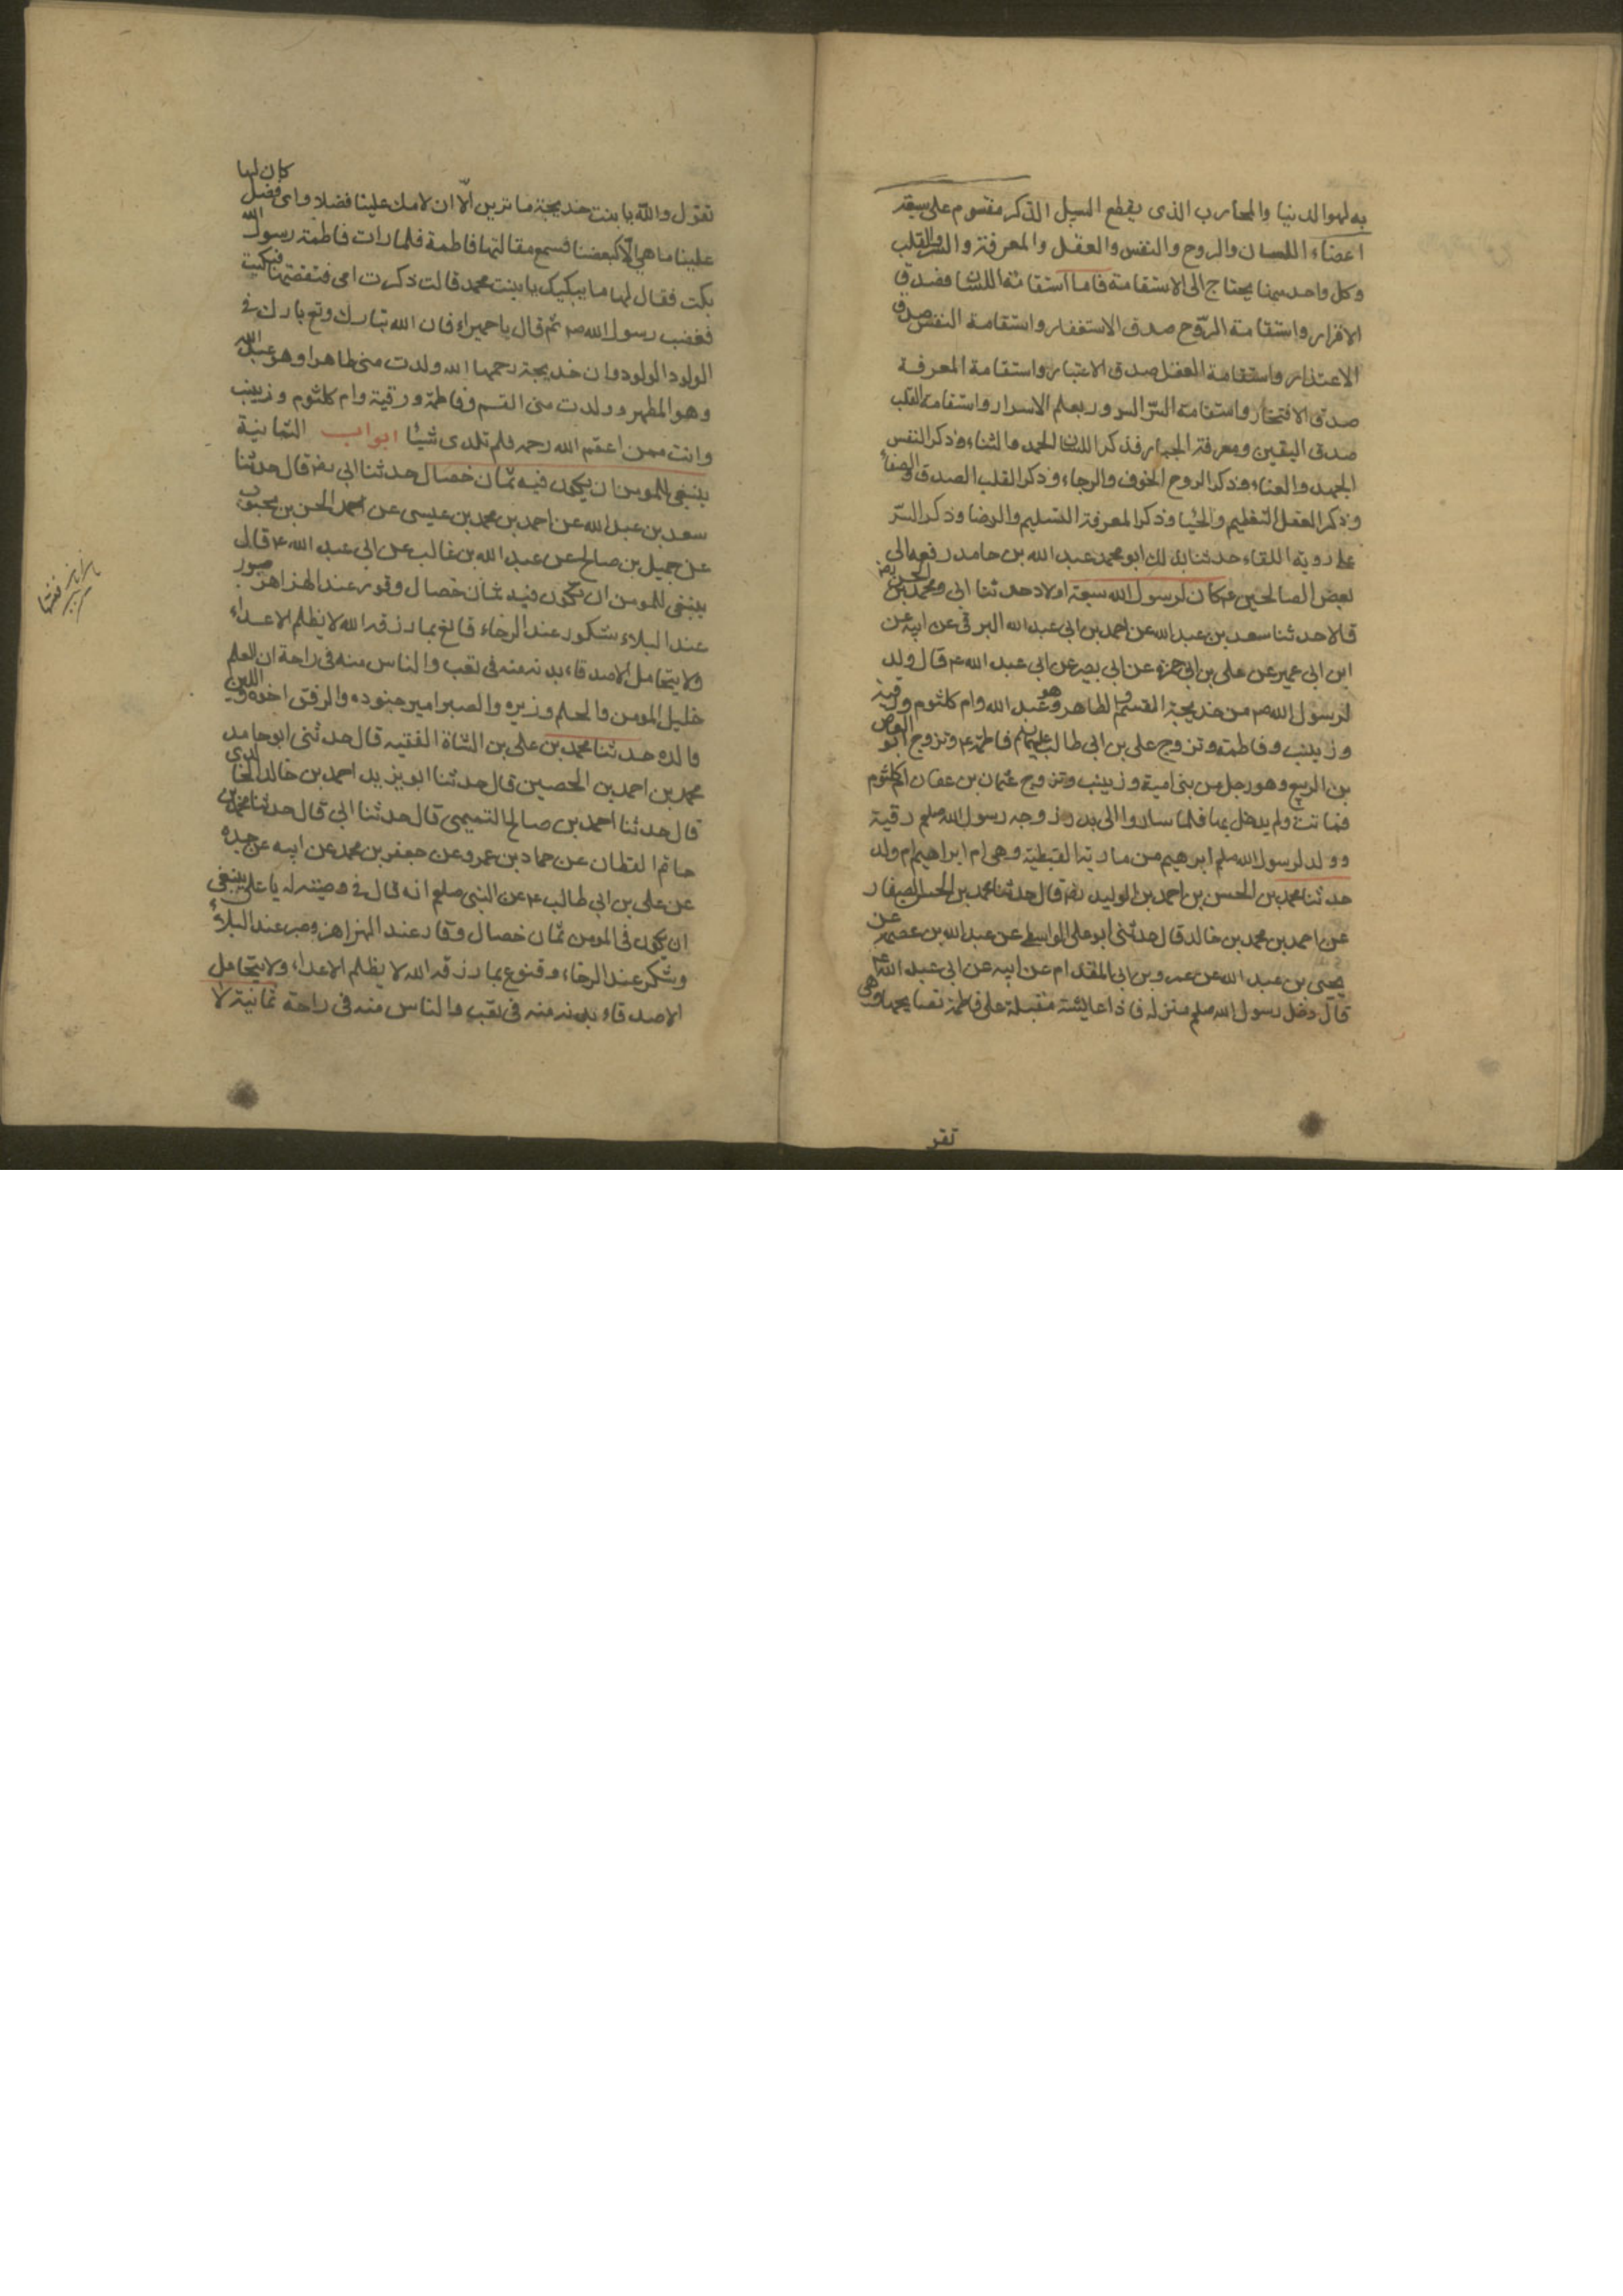 به لهو الدنيا والمحارب الذى يقطع السبل الذكر مقسوم على سبعة
اعضاء اللسان والروح والنفس والعقل والمعرفة والسر والقلب
وكل واحد منها يحتاج الى الاستقامة فاما استقامة اللسان فصدق
الاقرار واستقامة الرّوح صدق الاستغفار واستقامة النفس صدق
الاعتذار واستقامة العقل صدق الاعتبار واستقامة المعرفة
صدق الافتخار واستقامة السّر السرور بعلم الاسرار واستقامة القلب
صدق اليقين ومعرفة الجبار فذكر اللسان الحمد والثناء وذكر النفس
الجهد والعناء وذكر الروح الخوف والرجاء وذكر القلب الصدق والصفاء
وذكر العقل التعظيم والحيا وذكر المعرفة التسليم والرضا وذكر السّر
على روية اللقاء حدثنا بذلك ابو محمد عبد الله بن حامد رفعه الى
بعض الصالحين ع كان لرسول الله سبعة اولاد حدثنا ابى ومحمد بن الحسن رضه
قالا حدثنا سعد بن عبد الله عن احمد بن ابى عبد الله البرقى عن ابيه عن
ابن ابى عمير عن على بن ابى حمزه عن ابى بصير عن ابى عبد الله ع قال ولد
لرسول الله ص من خديجة القسم والطاهر وهو عبد الله وام كلثوم ورقية
وزينب وفاطمة وتزوج على بن ابى طالب عليهما السلم فاطمة ع وتزوج ابو العاص
بن الربيع وهو رجل من بنى امية وزينب وتزوج عثمان بن عفان ام كلثوم
فماتت ولم يدخل بها فلما ساروا الى بدر زوجه رسول الله صلعم رقية
وولد لرسول الله صلعم ابرهيم من مارية القبطية وهى ام ابراهيم ام ولد
حدثنا محمد بن الحسن بن احمد بن الوليد رضه قال حدثنا محمد بن الحسن الصفار
عن احمد بن محمد بن خالد قال حدثنى ابو على الواسطى عن عبد الله بن عصمة عن
يحيى بن عبد الله عن عمرو بن ابى المقدام عن ابيه عن ابى عبد الله ع
قال دخل رسول الله صلعم منزله فاذا عايشة مقبلة على فاطمة تصايحها وهى
تقو
تقول والله يا بنت خديجة ما ترين الّا ان لامك علينا فضلا واى فضل كان لها
علينا ما هى الّا كبعضنا فسمع مقالتها فاطمة فلما رات فاطمة رسول الله
بكت فقال لها ما يبكيك يا بنت محمد قالت ذكرت امى فتنقصتها فبكيت
فغضب رسول الله ص ثم قال يا حميراء فان الله تبارك وتع بارك فى
الولود الولود وان خديجة رحمها الله ولدت منى طاهرا وهو عبد الله
وهو المطهر وولدت منى القسم وفاطمة ورقية وام كلثوم وزينب
وانت ممن اعقم الله رحمه فلم تلدى شيئا ابواب الثمانية
ينبغى للمومن ان يكون فيه ثمان خصال حدثنا ابى رضه قال حدثنا
سعد بن عبد الله عن احمد بن محمد بن عيسى عن الحسن بن محبوب
عن جميل بن صالح عن عبد الله بن غالب عن ابى عبد الله ع قال
ينبغى للمومن ان تكون فيه ثمان خصال وقور عند الهزاهز صبور
عند البلاء شكور عند الرخاء قانع بما رزقه الله لا يظلم الاعداء
ولا يتحامل الاصدقاء بدنه منه فى تعب والناس منه فى راحة ان العلم
خليل المومن والحلم وزيره والصبر امير جنوده والرفق اخوه واللين
والده حدثنا محمد بن على بن الشاة الفقيه قال حدثنى ابو حامد
محمد بن احمد بن الحصين قال حدثنا ابو يزيد احمد بن خالد الخالدى
قال حدثنا احمد بن صالح التميمى قال حدثنا ابى قال حدثنا محمد بن
حاتم القطان عن حماد بن عمرو عن جعفر بن محمد عن ابيه عن جده
عن على بن ابى طالب ع عن النبى صلعم انه قال فى وصيته له يا على ينبغى
ان يكون فى المومن ثمان خصال وقار عند الهزاهز وصبر عند البلاء
وشكر عند الرخاء وقنوع بما رزقه الله لا يظلم الاعداء ولا يتحامل
الاصدقاء بدنه منه فى تعب والناس منه فى راحة ثمانية لا